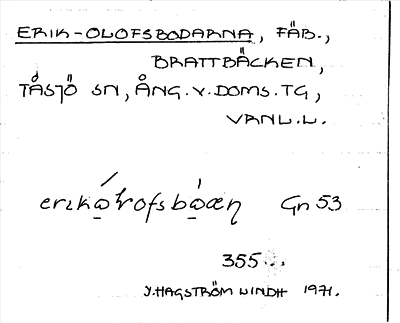 ERIK-OLOFSBODARNA, FÄB.,
BRATTBÄCKEN,
TÅSJÖ SN, ÅNG.V.DOMS.TG,
VANL.L.
Gn 53
355
Y.HAGSTRÖM WINDH 1971.